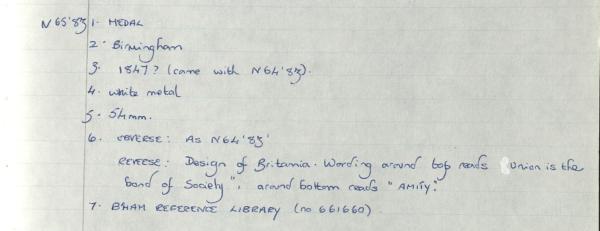 N65'83 1. MEDAL
2. Birmingham
3. 1847? (came with N64'83).
4. white metal
5. 54mm.
6. OBVERSE: As N64'83'
REVERSE: Design of Britania. Wording around top reads "Union is the
bond of Society", around bottom reads "AMITY".
7. B'HAM REFERENCE LIBRARY (no 661660)